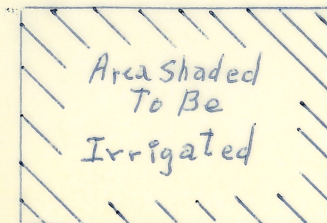 Area Shaded
To Be
Irrigated